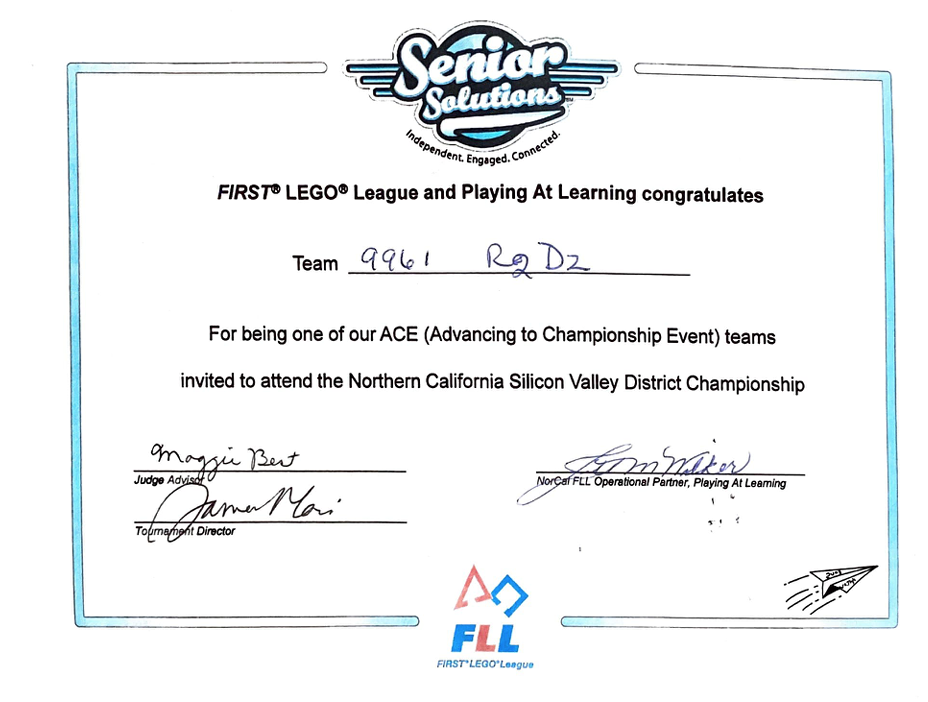 Senior
Solutions™
Independent. Engaged. Connected.
FIRST® LEGO® League and Playing At Learning congratulates
Team 9961 R2 D2
For being one of our ACE (Advancing to Championship Event) teams
invited to attend the Northern California Silicon Valley District Championship
Maggie Bert
Judge Advisor
James Mori
Tournament Director
Walker
NorCal FLL Operational Partner, Playing At Learning
FLL
FIRST® LEGO® League